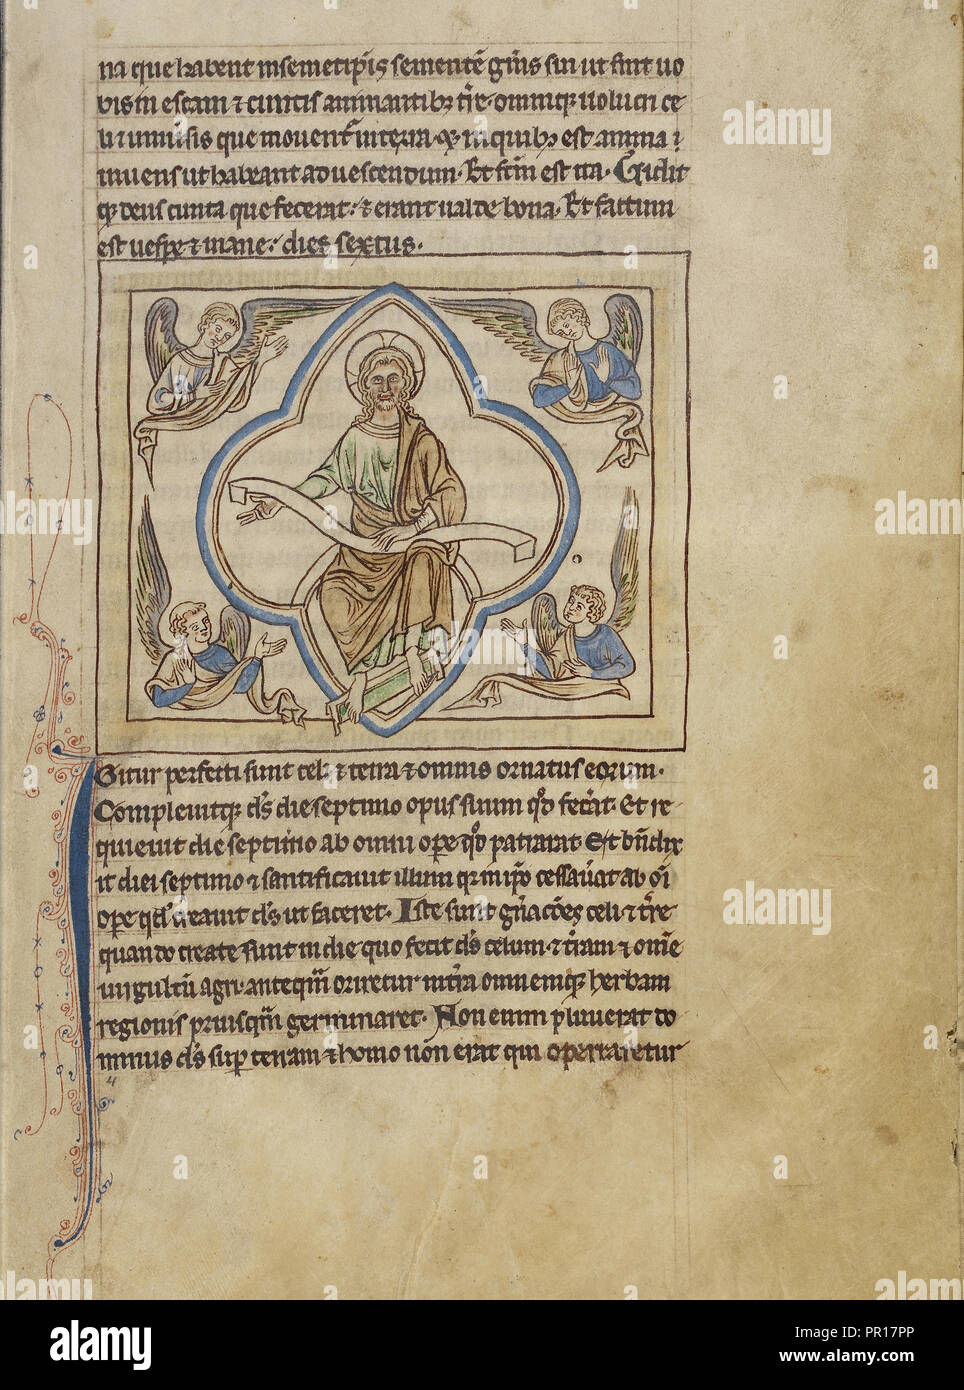 na que habent insemetip̄is sementē gn̄is sui ut sint uo
bis in escam ⁊ cunctis animantibꝫ tr̄e· omniq; uolucri ce
li ⁊ uniu͛sis que mouent᷑ in terra· ⁊ in quibꝫ est anima ui
uens ut habeant ad uescendum· Et fc̄m est ita· Uidit
q; deus cuncta que fecerat· ⁊ erant ualde bona· Et factum
est uesꝑe ⁊ mane· dies sextus·
Igitur perfecti sunt celi ⁊ terra ⁊ omnis ornatus eorum·
Compleuitq; ds̄ die septimo opus suum qd̄ fec͛at· Et re
quieuit die septimo ab omni oꝑe qd̄ patrarat Et bn̄dix
it diei septimo ⁊ sanctificauit illum qr in ip̄o cessau͛at ab oi̅
oꝑe qd̄ creauit ds̄ ut faceret· Iste sunt gn̄acōes celi ⁊ tr̄e
quando create sunt in die quo fecit ds̄ celum· ⁊ tr̄am ⁊ om̄e
uirgultū agri· anteqm̄ oriretur in tr̄a omnemq; herbam
regionis priusqm̄ germinaret· Non enim pluuerat do
minus ds̄ suꝑ terram ⁊ homo non erat qui operraretur
4
alamy
Image ID: PR17PP
www.alamy.com